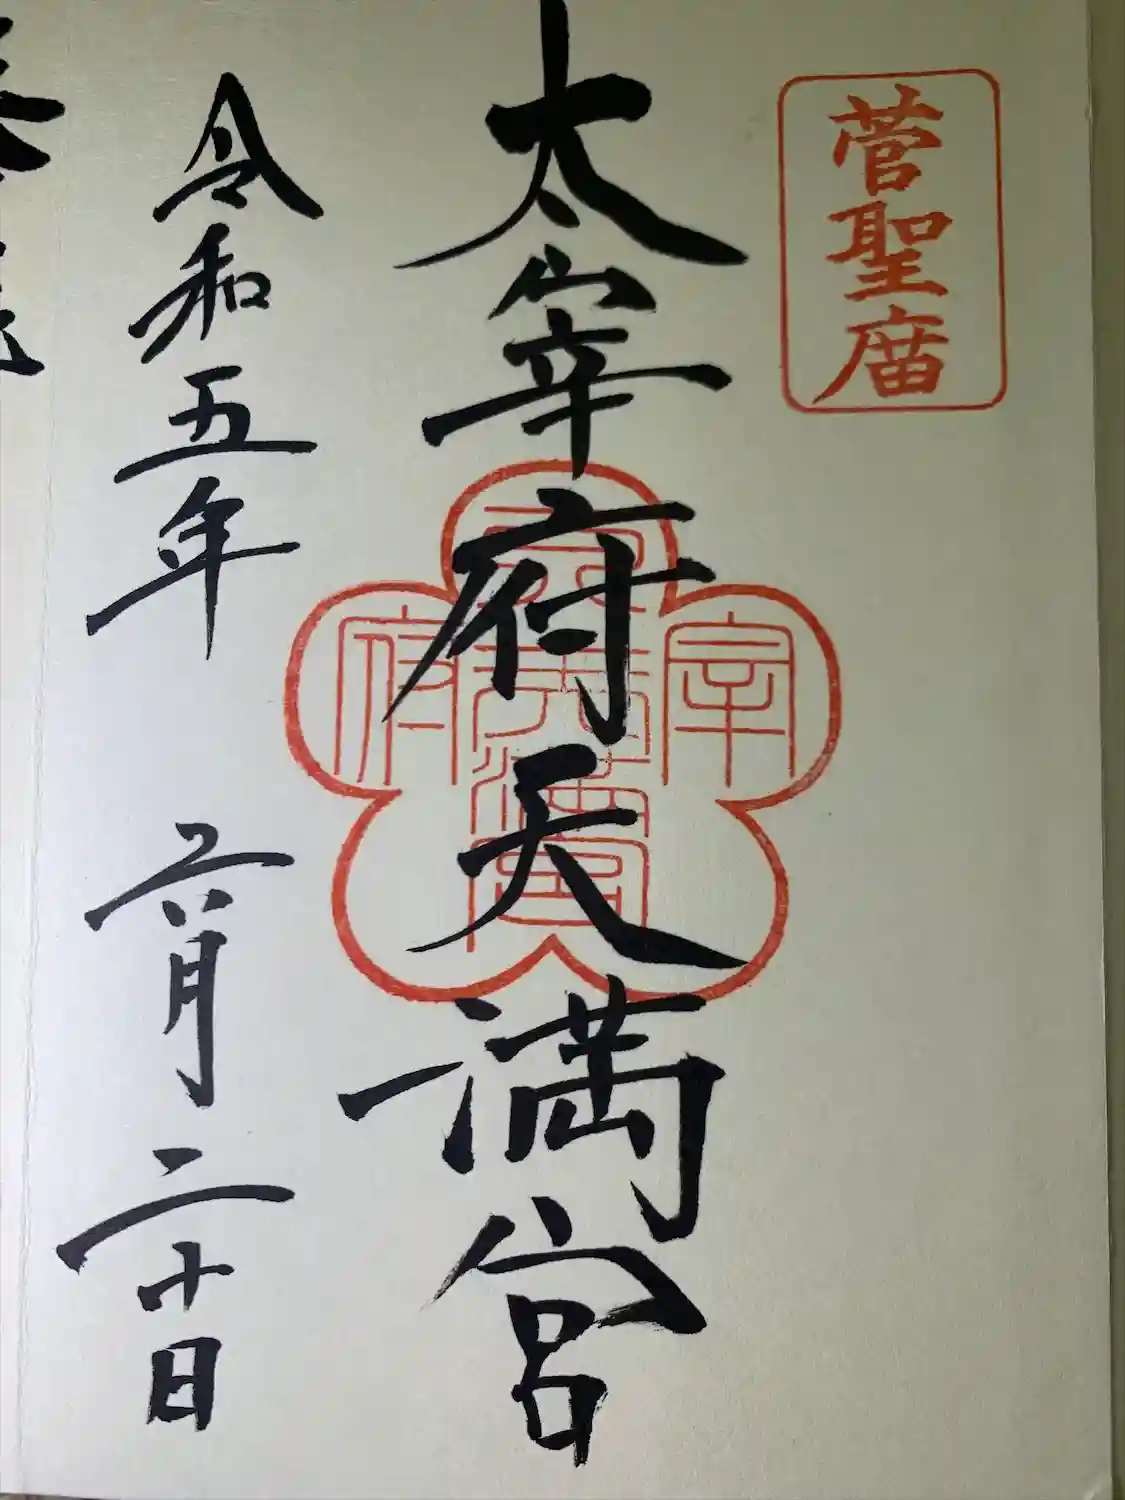 菅聖庿
太宰府天満宮
太宰府天満宮
令和五年 六月二十日
奉